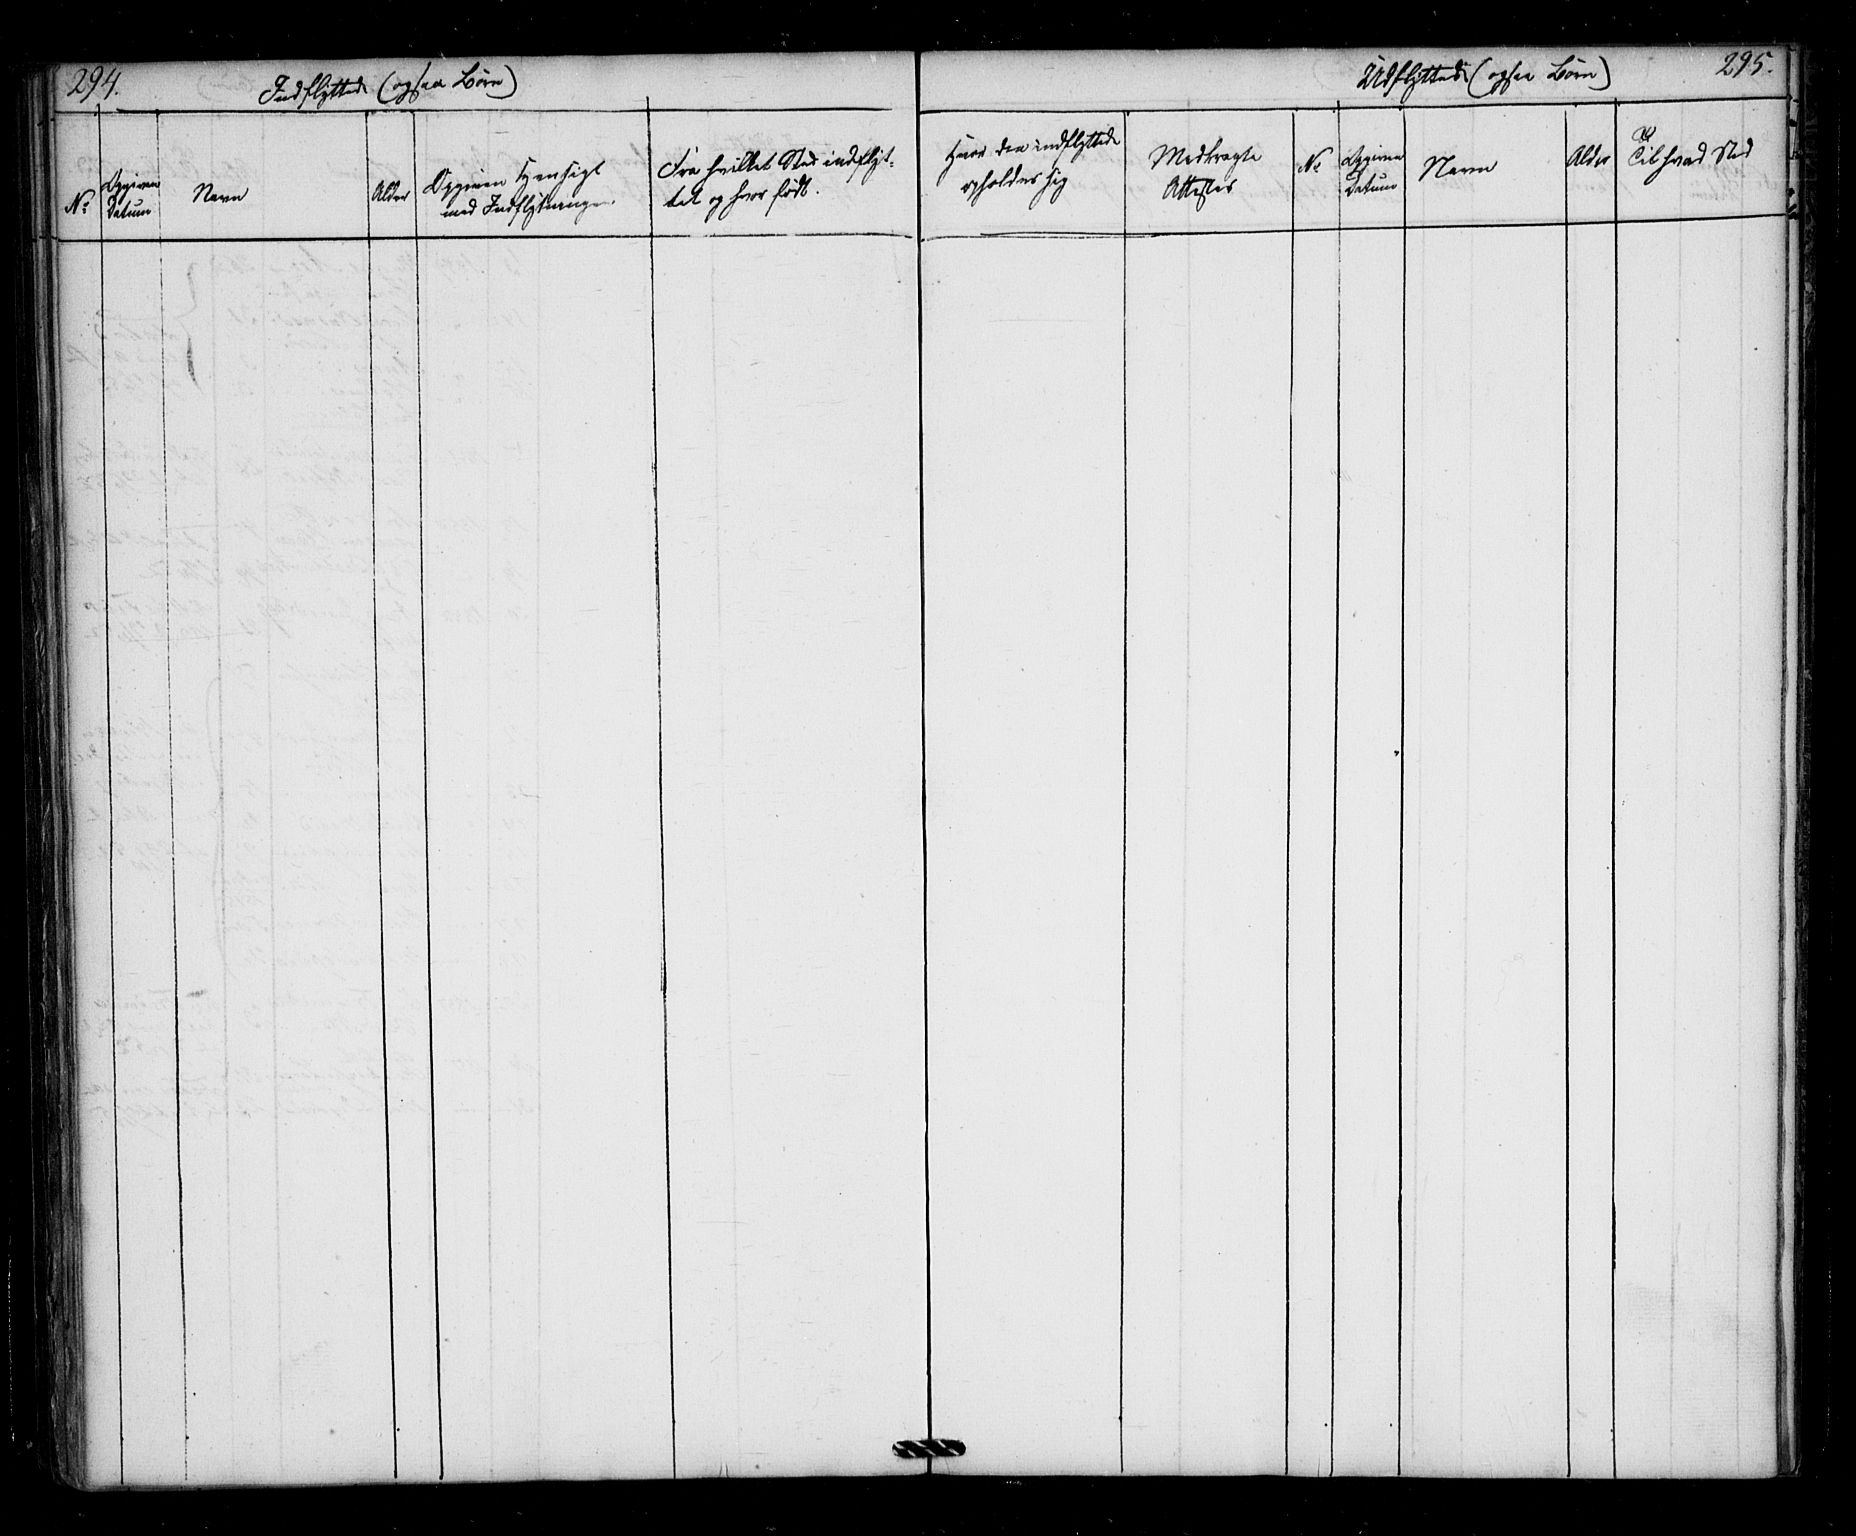 294.
Indflyttede (ogsaa Børn)
No
Opgiven
Datum
Navn
Alder
Opgiven Hensigt
med Indflytningen
Fra hvilket Sted indflyt-
tet og hvor født.
295.
Udflyttede (ogsaa Børn)
Hvor den indflyttede
opholder sig
Medbragte
Attester
No
Opgiven
Datum
Navn
Alder
Til hvad Sted